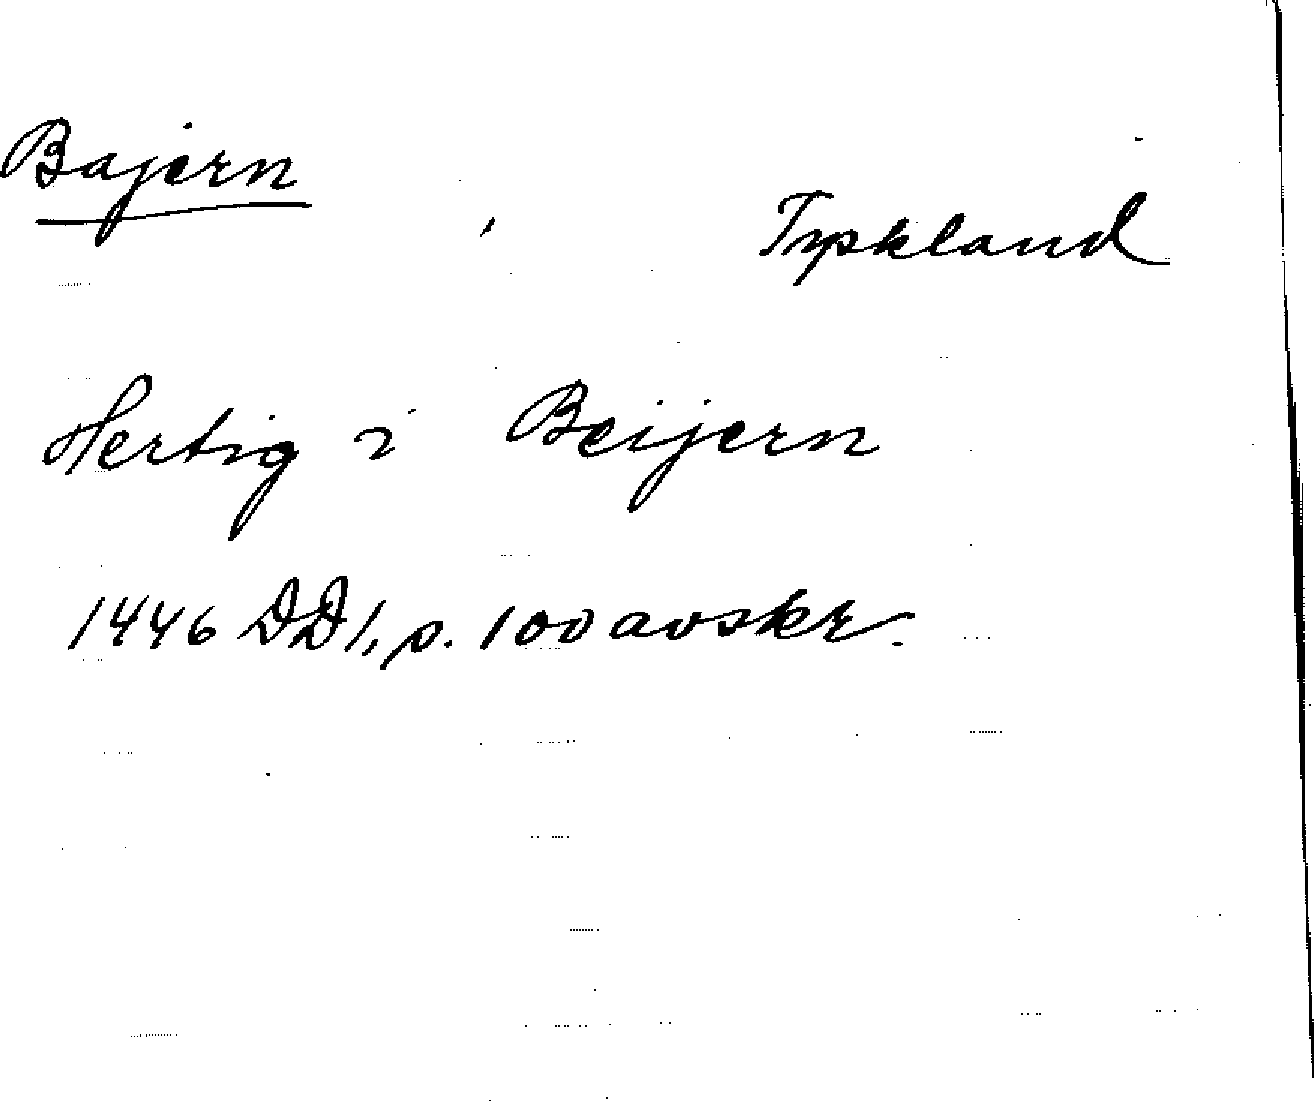 Bajern
Tyskland
Hertig i Beijern
1446 DD1, s. 100 avskr.